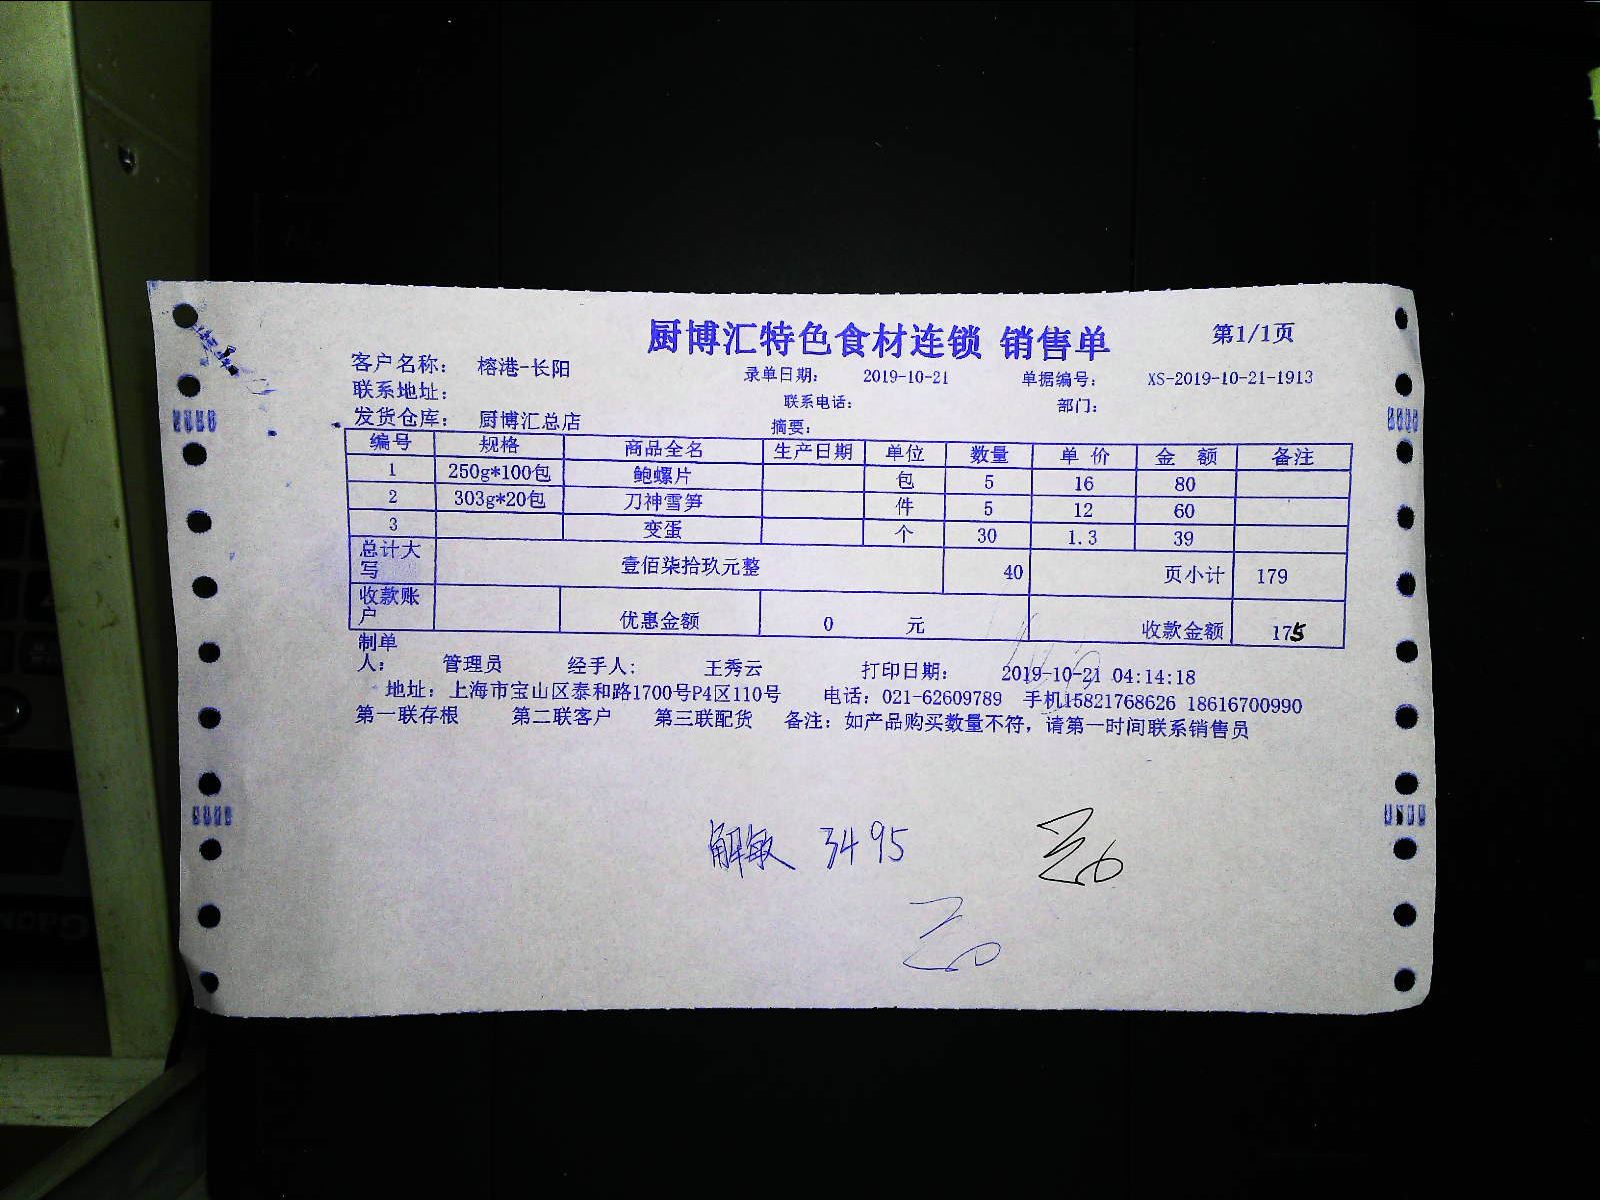 厨博汇特色食材连锁 销售单 第1/1页
客户名称： 榕港-长阳 录单日期： 2019-10-21 单据编号： XS-2019-10-21-1913
联系地址： 联系电话： 部门：
发货仓库： 厨博汇总店 摘要：
编号 规格 商品全名 生产日期 单位 数量 单 价 金 额 备注
1 250g*100包 鲍螺片 包 5 16 80
2 303g*20包 刀神雪笋 件 5 12 60
3 变蛋 个 30 1.3 39
总计大写 壹佰柒拾玖元整 40 页小计 179
收款账户 优惠金额 0 元 收款金额 175
制单人： 管理员 经手人： 王秀云 打印日期： 2019-10-21 04:14:18
地址：上海市宝山区泰和路1700号P4区110号 电话：021-62609789 手机15821768626 18616700990
第一联存根 第二联客户 第三联配货 备注：如产品购买数量不符，请第一时间联系销售员
解敏 3495